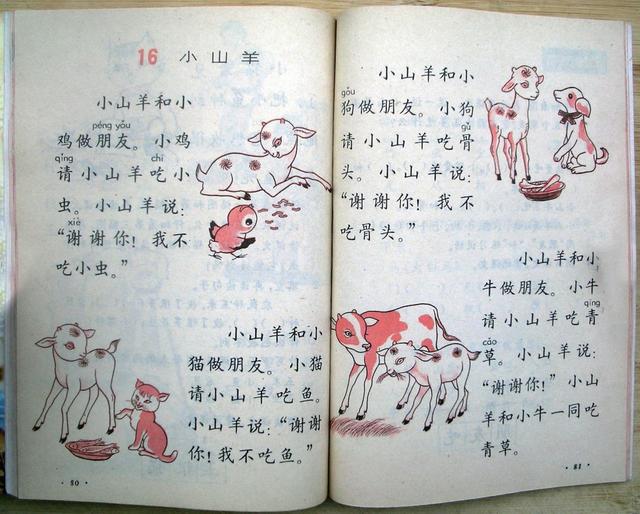 16 小山羊
小山羊和小
鸡做朋友。小鸡
péng yǒu
请小山羊吃小
qǐng chī
虫。小山羊说:
“谢谢你!我不
xiè
吃小虫。”
小山羊和小
猫做朋友。小猫
请小山羊吃鱼。
小山羊说:“谢谢
你!我不吃鱼。”
·80·
小山羊和小
gǒu
狗做朋友。小狗
请小山羊吃骨
gǔ
头。小山羊说:
“谢谢你!我不
吃骨头。”
小山羊和小
牛做朋友。小牛
qīng
请小山羊吃青
cǎo
草。小山羊说:
“谢谢你!”小山
羊和小牛一同吃
青草。
·81·